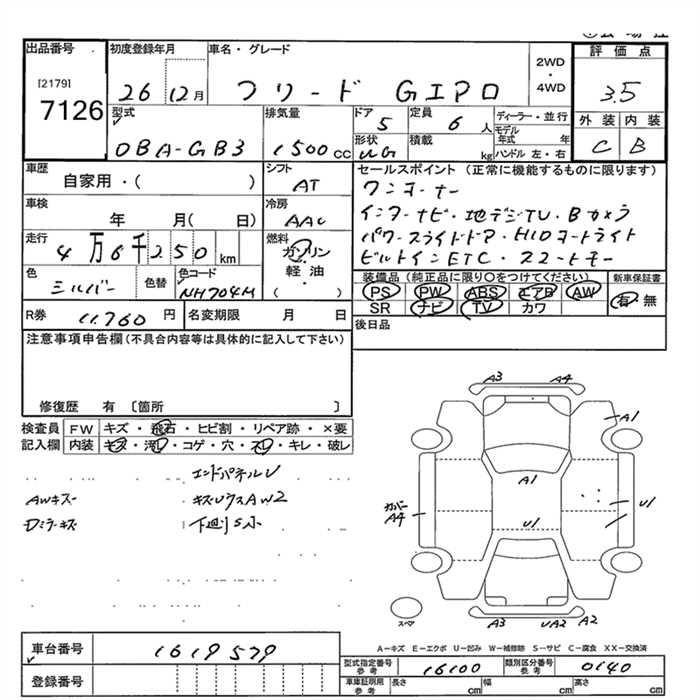 出品番号 初度登録年月 車名・グレード 評価点
[2179] 7126 26 12月 フリード Gエアロ 2WD・4WD 3.5
型式 排気量 ドア 定員 ディーラー・並行 外装 内装
DBA-GB3 1500cc 5 6人 モデル年式 年 C B
形状 積載 ハンドル 左・右
UG kg
車歴 シフト セールスポイント (正常に機能するものに限ります)
自家用・( ) AT ワンオーナー
車検 冷房 インターナビ・地デジTV・Bカメラ
年 月( 日) AAC パワースライドドア・HIDヘッドライト
走行 燃料 ビルトインETC・スマートキー
4万6千250km ガソリン・軽油・( )
色 色替 色コード 装備品 (純正品に限り〇をつけてください) 新車保証書
シルバー NH704M PS PW ABS エアB AW 有 無
SR ナビ TV カワ
R券 11,760円 名変期限 月 日 後日品
注意事項申告欄(不具合内容等は具体的に記入して下さい)
修復歴 有 〔箇所 〕
検査員 FW キズ・飛石・ヒビ割・リペア跡・×要
記入欄 内装 キズ・汚レ・コゲ・穴・スレ・キレ・破レ
エンドパネルU
AWキズ キズUウスAW2
Dミラーキズ 下廻りS小
A3 A4
A1
A1
カバーA4 U1 U1
スペア A3 UA2 A2
A-キズ E-エクボ U-凹み W-補修跡 S-サビ C-腐食 XX-交換済
車台番号 1619579
型式指定番号 参考 16100 類別区分番号 参考 0140
登録番号 車庫証明用 参考 長さ cm 幅 cm 高さ cm